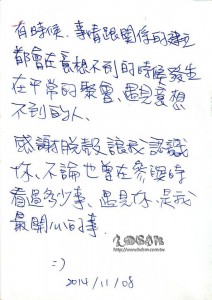 有時候、事情跟關係的建立
都會在意想不到的時候發生
在平常的聚會、遇見意想
不到的人、
感謝脫殼 讓我認識
妳、不論也曾在參選時
看過多少事、遇見妳、是我
最開心的事
:)
2014/11/08